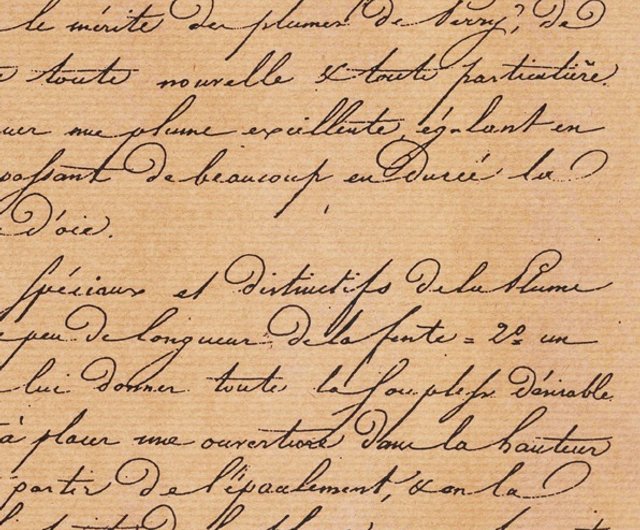 le mérite des plumes de Perry, de
toute nouvelle & toute particulière.
uer une plume excellente, égalant en
passant de beaucoup en Durée la
D'oie.
spéciaux et distinctifs de la Plume
peu de longueur de la fente = 2º un
lui donner toute la souplesse Désirable
à placer une ouverture dans la hauteur
partir de l'épaulement, & en la